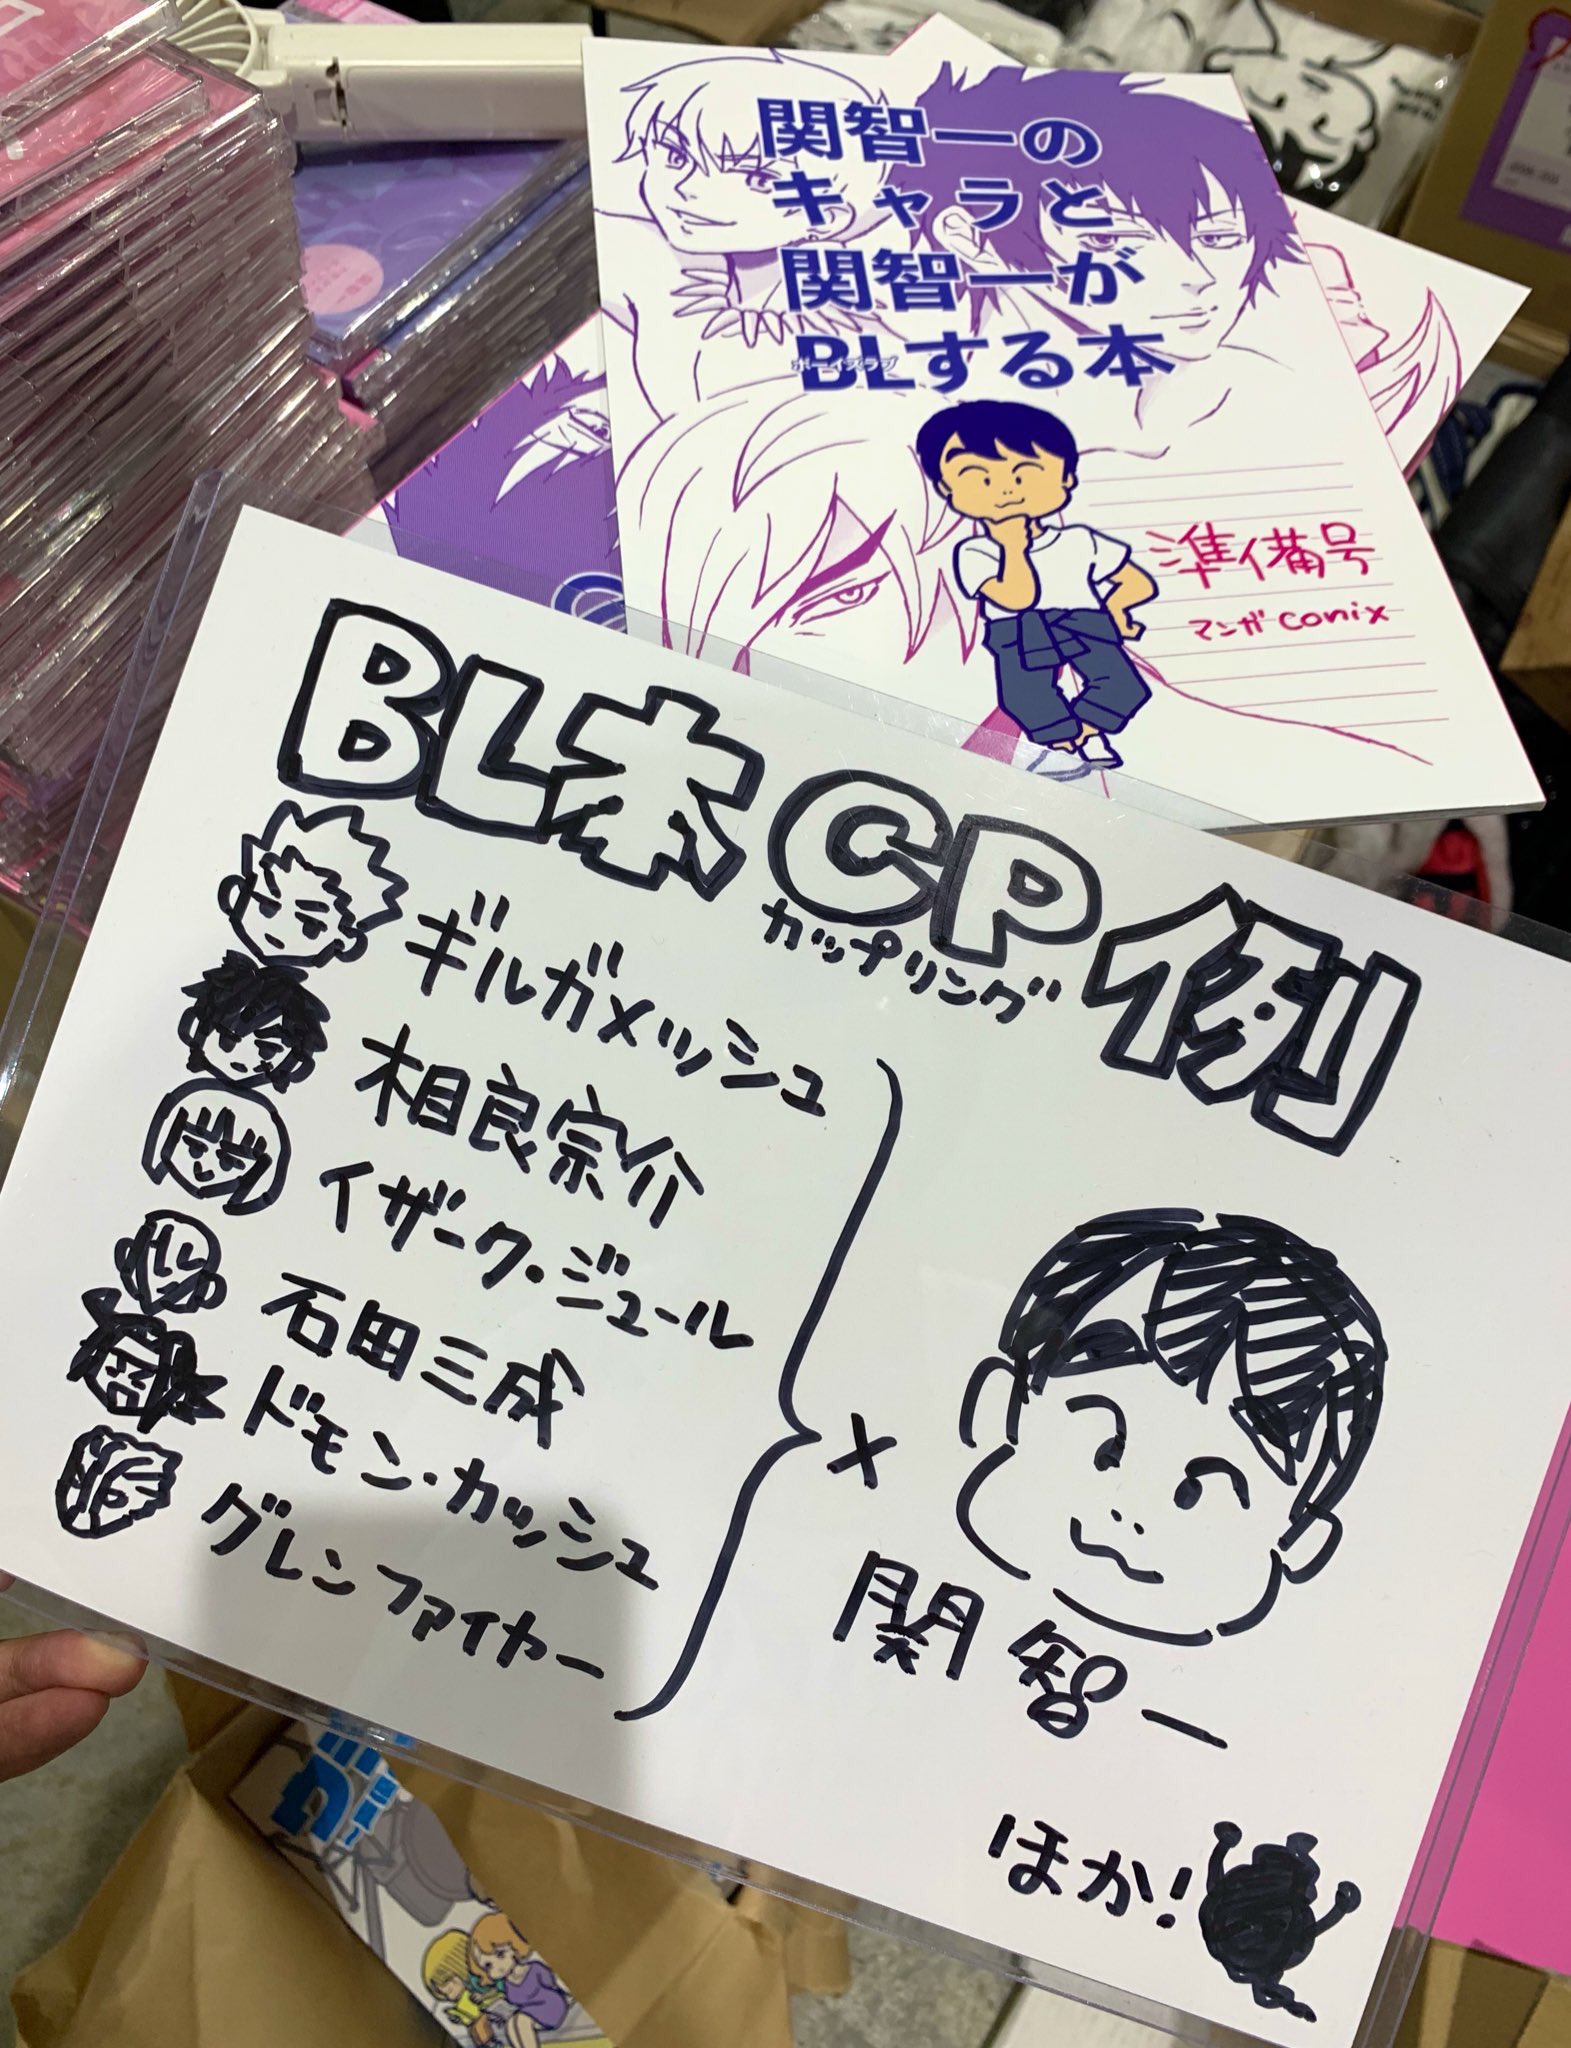 関智一の
キャラと
関智一が
BLする本
ボーイズラブ
準備号
マンガ conix
BL本 CP例
カップリング
ギルガメッシュ
相良宗介
イザーク・ジュール
石田三成
ドモン・カッシュ
グレンファイヤー
×
関智一
ほか!